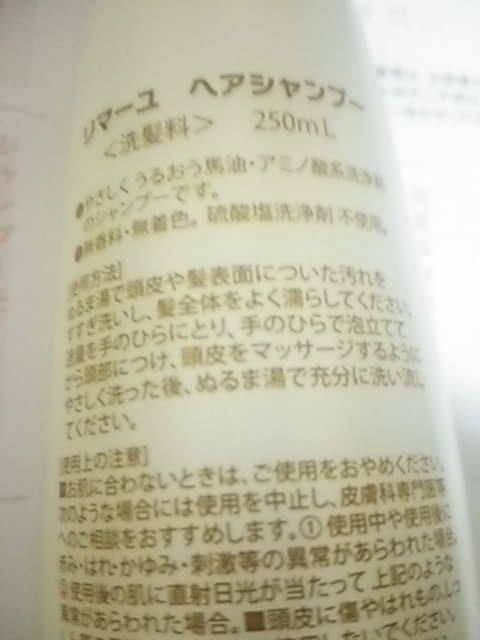 リマーユ ヘアシャンプー
<洗髪料> 250mL
●やさしくうるおう馬油・アミノ酸系洗浄剤
のシャンプーです。
●無香料・無着色。硫酸塩洗浄剤不使用。
[使用方法]
ぬるま湯で頭皮や髪表面についた汚れを
すすぎ洗いし、髪全体をよく濡らしてください。
適量を手のひらにとり、手のひらで泡立てて
から頭部につけ、頭皮をマッサージするように
やさしく洗った後、ぬるま湯で充分に洗い流し
てください。
[使用上の注意]
■お肌に合わないときは、ご使用をおやめください。
次のような場合には使用を中止し、皮膚科専門医等
へのご相談をおすすめします。①使用中や使用後に
赤み・はれ・かゆみ・刺激等の異常があらわれた場合。
②使用後の肌に直射日光が当たって上記のような
異常があらわれた場合。■頭皮に傷やはれもの、しっ